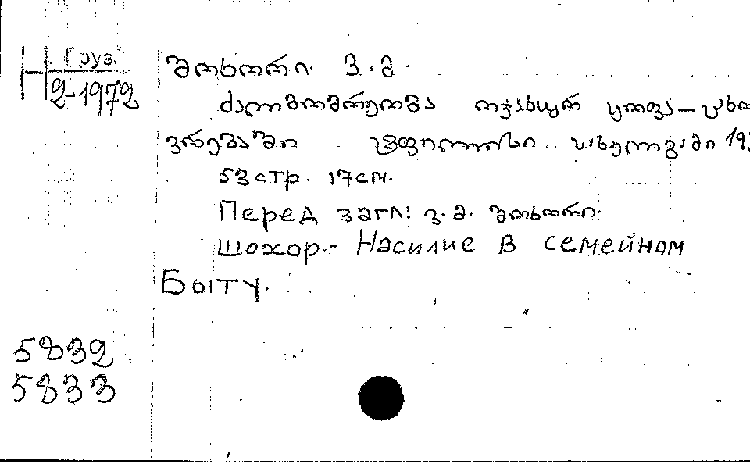 Н Груз.
2-1972
შოხორი ვ.მ.
ძალმომრეობა ოჯახურ ყოფა-ცხო
ვრებაში. სახელგამი 19
53 стр. 17 см.
Перед загл: ვ.მ. შოხორი.
Шохор.- Насилие в семейном
Быту.
5832
5833